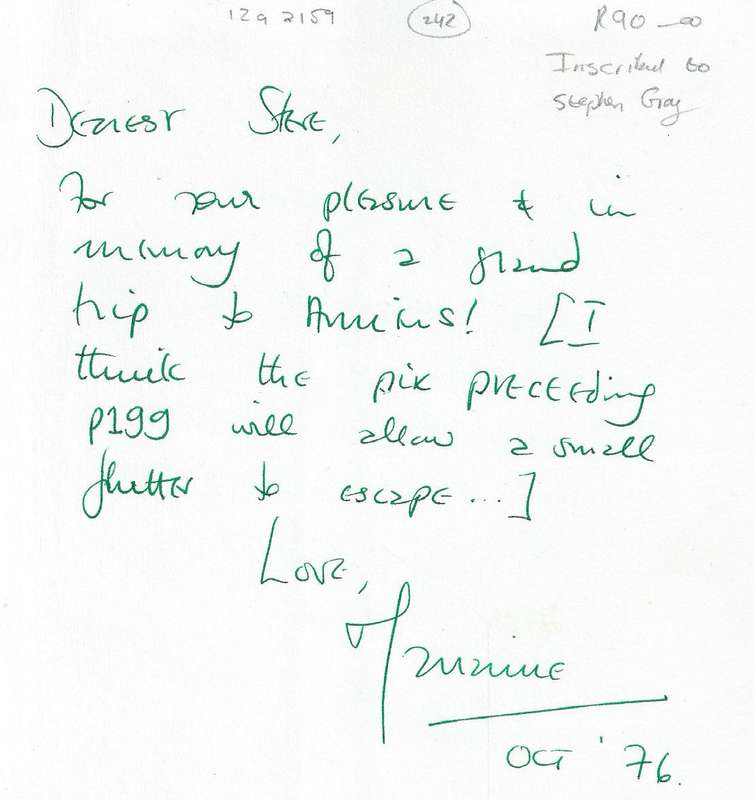 12a 2159 242 R90-00
Inscribed to
Stephen Gray
Dearest Steve,
For your pleasure & in
memory of a grand
trip to
think the pix preceeding
p199 will allow a small
flutter to escape...]
Love,
OCT '76.